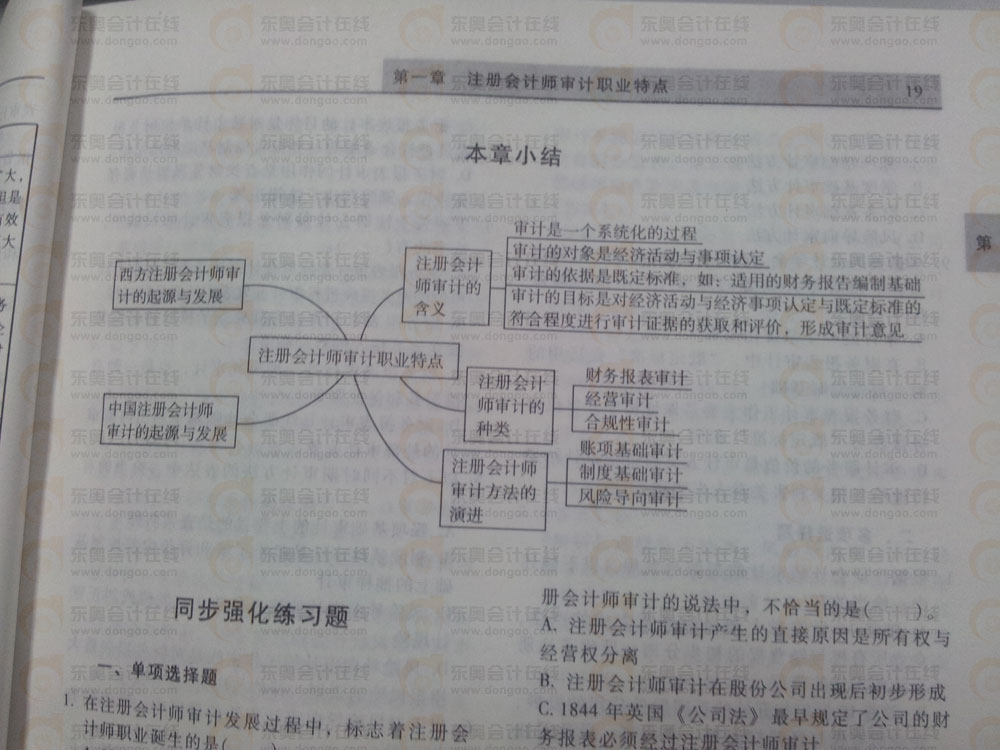 第一章 注册会计师审计职业特点
19
本章小结
西方注册会计师审
计的起源与发展
中国注册会计师
审计的起源与发展
注册会计师审计职业特点
注册会计
师审计的
含义
审计是一个系统化的过程
审计的对象是经济活动与事项认定
审计的依据是既定标准，如：适用的财务报告编制基础
审计的目标是对经济活动与经济事项认定与既定标准的
符合程度进行审计证据的获取和评价，形成审计意见
注册会计
师审计的
种类
财务报表审计
经营审计
合规性审计
注册会计师
审计方法的
演进
账项基础审计
制度基础审计
风险导向审计
同步强化练习题
一、单项选择题
1. 在注册会计师审计发展过程中，标志着注册会
计师职业诞生的是(
册会计师审计的说法中，不恰当的是( )。
A. 注册会计师审计产生的直接原因是所有权与
经营权分离
B. 注册会计师审计在股份公司出现后初步形成
C. 1844 年英国《公司法》最早规定了公司的财
务报表必须经过注册会计师审计
第
大，
且是
有效
大
务
东奥会计在线
www.dongao.com